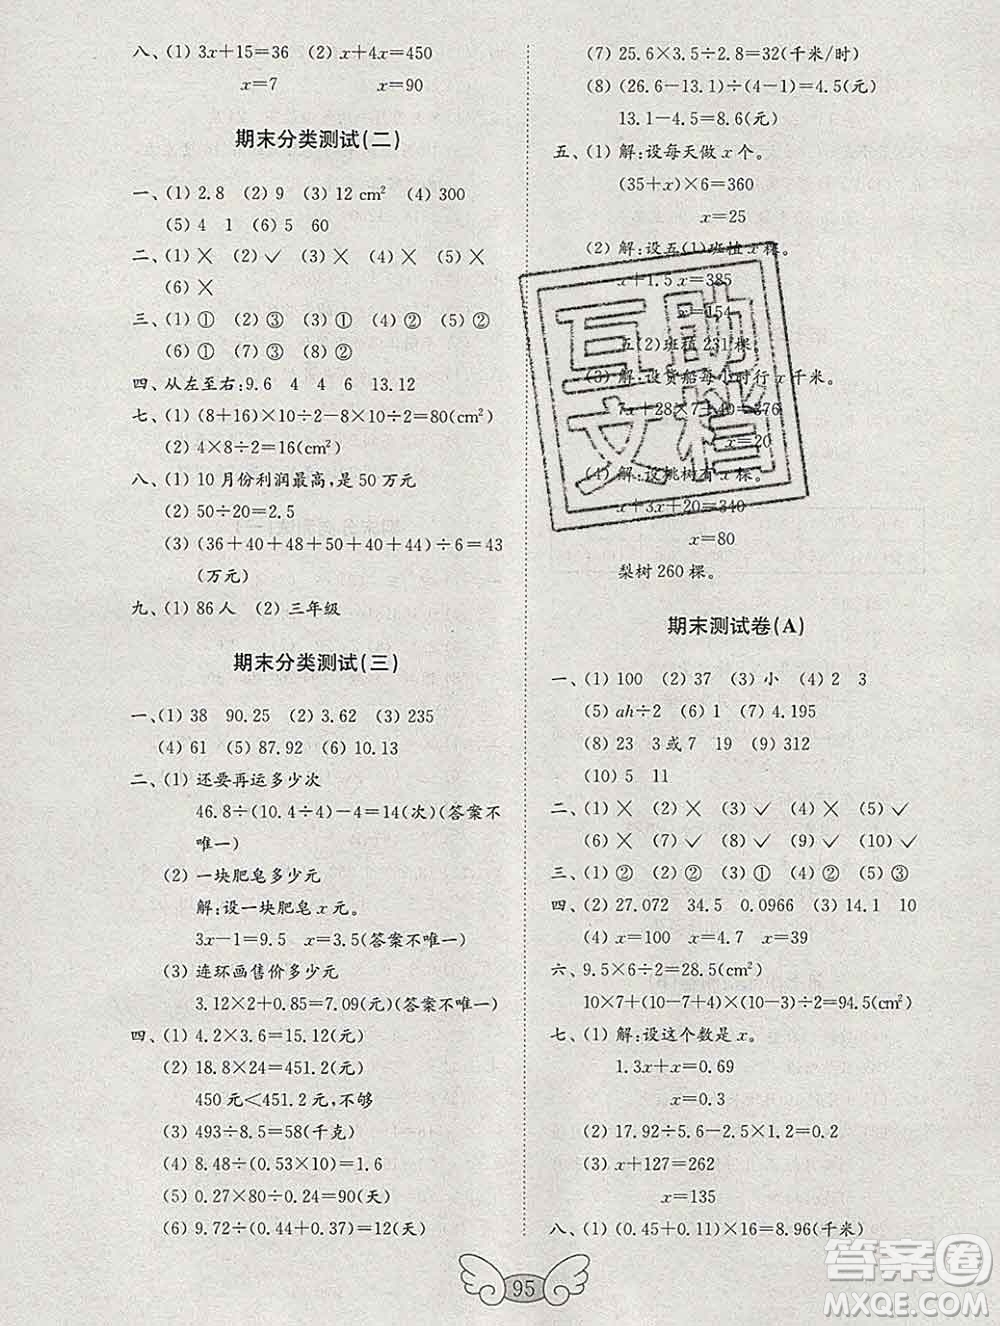 八、(1) 3x+15=36 (2) x+4x=450
x=7 x=90
期末分类测试(二)
一、(1) 2.8 (2) 9 (3) 12 cm² (4) 300
(5) 4 1 (6) 5 60
二、(1)✕ (2)✓ (3)✕ (4)✕ (5)✕
(6)✕
三、(1)① (2)③ (3)② (4)② (5)②
(6)① (7)② (8)③
四、从左至右:9.6 4 4 6 13.12
七、(1) (8+16)×10÷2-8×10÷2=80(cm²)
(2) 4×8÷2=16(cm²)
八、(1) 10月份利润最高,是50万元
(2) 50÷20=2.5
(3) (36+40+40+50+48+44)÷6=43
(万元)
九、(1) 86人 (2) 三年级
期末分类测试(三)
一、(1) 38 90.25 (2) 3.62 (3) 235
(4) 61 (5) 87.92 (6) 10.13
二、(1) 还要再运多少次
46.8÷(10.4÷4)-4=14(次)(答案不
唯一)
(2) 一块肥皂多少元
解:设一块肥皂x元。
3x-1=9.5 x=3.5(答案不唯一)
(3) 连环画售价多少元
3.12×2+0.85=7.09(元)(答案不唯一)
四、(1) 4.2×3.6=15.12(元)
(2) 18.8×24=451.2(元)
450元<451.2元,不够
(3) 493÷8.5=58(千克)
(4) 8.48÷(0.53×10)=1.6
(5) 0.27×80÷0.24=90(天)
(6) 9.72÷(0.44+0.37)=12(天)
(7) 25.6×3.5÷2.8=32(千米/时)
(8) (26.6-13.1)÷(4-1)=4.5(元)
13.1-4.5=8.6(元)
五、(1) 解:设每天做x个。
(35+x)×6=360
x=25
(2) 解:设五(1)班植x棵。
x+1.5x=385
x=154
五(2)班植231棵。
(3) 解:设货船每小时行x千米。
7x+28×7+40=376
x=20
(4) 解:设桃树有x棵。
x+3x+20=340
x=80
梨树260棵。
期末测试卷(A)
一、(1) 100 (2) 37 (3) 小 (4) 2 3
(5) ah÷2 (6) 1 (7) 4.195
(8) 23 3或7 19 (9) 312
(10) 5 11
二、(1)✕ (2)✕ (3)✓ (4)✕ (5)✓
(6)✕ (7)✓ (8)✓ (9)✓ (10)✓
三、(1)② (2)② (3)① (4)② (5)③
四、(2) 27.072 34.5 0.0966 (3) 14.1 10
(4) x=100 x=4.7 x=39
六、9.5×6÷2=28.5(cm²)
10×7+(10-7+4)×(10-3)÷2=94.5(cm²)
七、(1) 解:设这个数是x。
1.3x+x=0.69
x=0.3
(2) 17.92÷5.6-2.5×1.2=0.2
(3) x+127=262
x=135
八、(1) (0.45+0.11)×16=8.96(千米)
95
互助
文档
答案圈
MXQE.COM